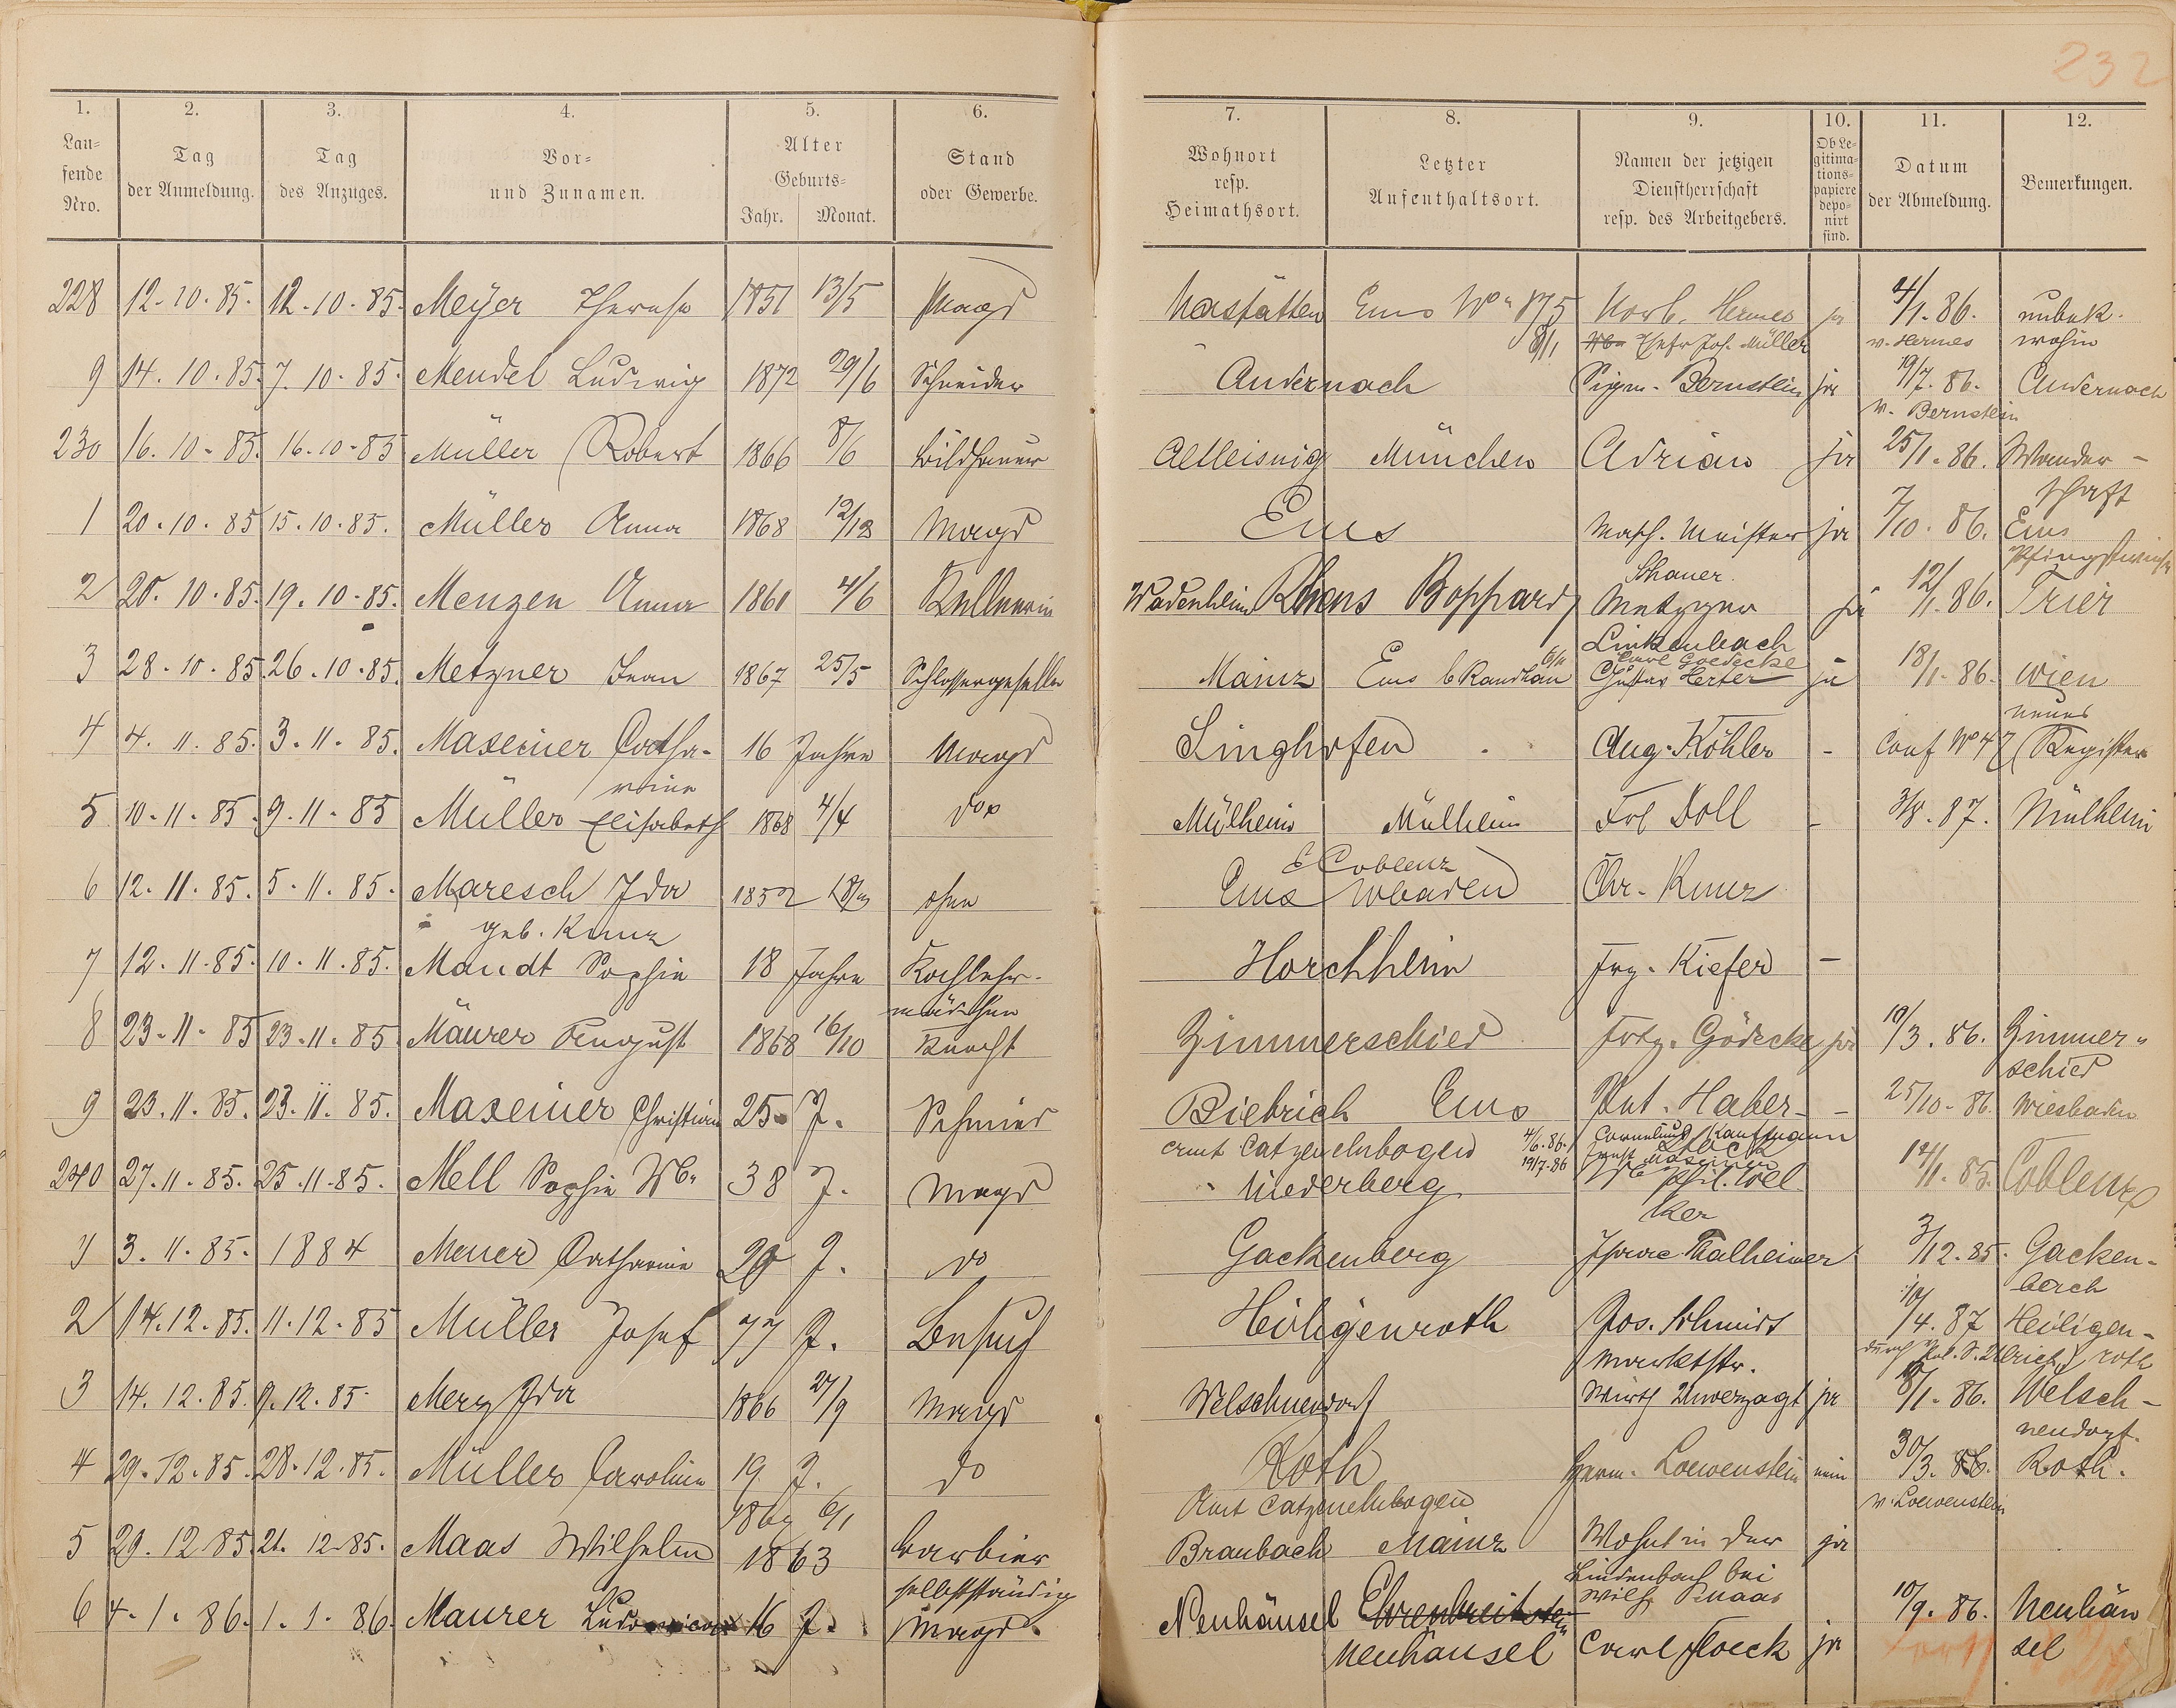 232
1. 2. 3. 4. 5. 6. 7. 8. 9. 10. 11. 12.
Lau-
fende
Nro.
Tag
der Anmeldung.
Tag
des Anzuges.
Vor-
und Zunamen.
Alter
Geburts-
Jahr. Monat.
Stand
oder Gewerbe.
Wohnort
resp.
Heimathsort.
Letzter
Aufenthaltsort.
Namen der jetzigen
Dienstherrschaft
resp. des Arbeitgebers.
Ob Le-
gitima-
tions-
papiere
depo-
nirt
sind.
Datum
der Abmeldung.
Bemerkungen.
228 12.10.85. 12.10.85. Meyer Therese 1851 13/5 Magd Nastätten Ems No 175 Hermes ja 4/1.86. unbek.
8/1 Jos. Müller v. Hermes wohin
9 14.10.85. 7.10.85. Mendel Ludwig 1872 29/6 Schneider Andernach Sigm. Bernstein ja 19/7.86. Andernach
v. Bernstein
230 16.10.85. 16.10.85 Müller Robert 1866 8/6 Bildhauer Altleisnig München Adrian ja 25/1.86. Wander-
schaft
1 20.10.85 15.10.85. Müller Anna 1868 12/12 Magd Ems Masch. Meister ja 7/10.86. Ems
Thauer Pfingstwiese
2 20.10.85. 19.10.85. Menzen Anna 1861 4/6 Kellnerin Wadenheim Rhens Boppard Metzger ja 12/1.86. Trier
Linkenbach
3 28.10.85. 26.10.85. Metzner Jean 1867 25/5 Schlossergeselle Mainz Ems b Randhan Carl Goedecke
Gustav Herter ja 18/1.86. Wien
4 4.11.85. 3.11.85. Maxeiner Catha- 16 Jahre Magd Singhofen Aug. Köhler - Conf No 47 neues
Register
rine
5 10.11.85. 9.11.85 Müller Elisabeth 1868 4/4 do Mülheim Mülheim Frl Doll - 3/8.87. Mülheim
6 12.11.85. 5.11.85. Maresch Ida 1852 ohne Ems Coblenz
Wbaden Chr. Kunz -
geb. Kunz
7 12.11.85. 10.11.85. Mandt Sophie 18 Jahre Kochlehr- Horchheim Frz. Kiefer -
mädchen
8 23.11.85 23.11.85 Maurer August 1868 16/10 Knecht Zimmerschied Frtz. Gödecke ja 19/3.86. Zimmer-
schied
9 23.11.85. 23.11.85. Maxeiner Christian 25 J. Schmied Biebrich Ems Ant. Haber - 25/10.86. Wiesbaden
Amt Catzenelnbogen 4/6.86. Cornelius Kauffmann
19/7.86
240 27.11.85. 25.11.85. Mell Sophie Wb. 38 J. Magd Niederberg Wb Phil. Wel 12/1.85. Coblenz
ker
1 3.11.85. 1884 Meuer Catharine 29 J. do Gackenberg Isaac Thalheimer 3/12.85. Gacken-
berch
2 14.12.85. 11.12.85 Müller Josef 77 J. Besuch Heiligenroth Jos. Schmidt 10/4.87 Heiligen-
Marktstr. durch Pol. S. Ulrich roth
3 14.12.85. 9.12.85. Merz Ida 1866 27/9 Magd Welschneudorf Wirth Unverzagt ja 8/1.86. Welsch-
neudorf.
4 29.12.85. 28.12.85. Müller Caroline 19 J. do Roth Herm. Loewenstein nein 30/3.86. Roth.
6/1 Amt Catzenelnbogen v. Loewenstein
5 29.12.85 21.12.85. Maas Wilhelm 1863 Barbier Braubach Mainz Wohnt in der ja
selbstständig Lindenbach bei
Wilh Maas
6 4.1.86. 1.1.86. Maurer 16 J. Magd. Neuhäusel Ehrenbreitstein
Neuhäusel Carl Floeck ja 10/9.86. Neuhäu
sel